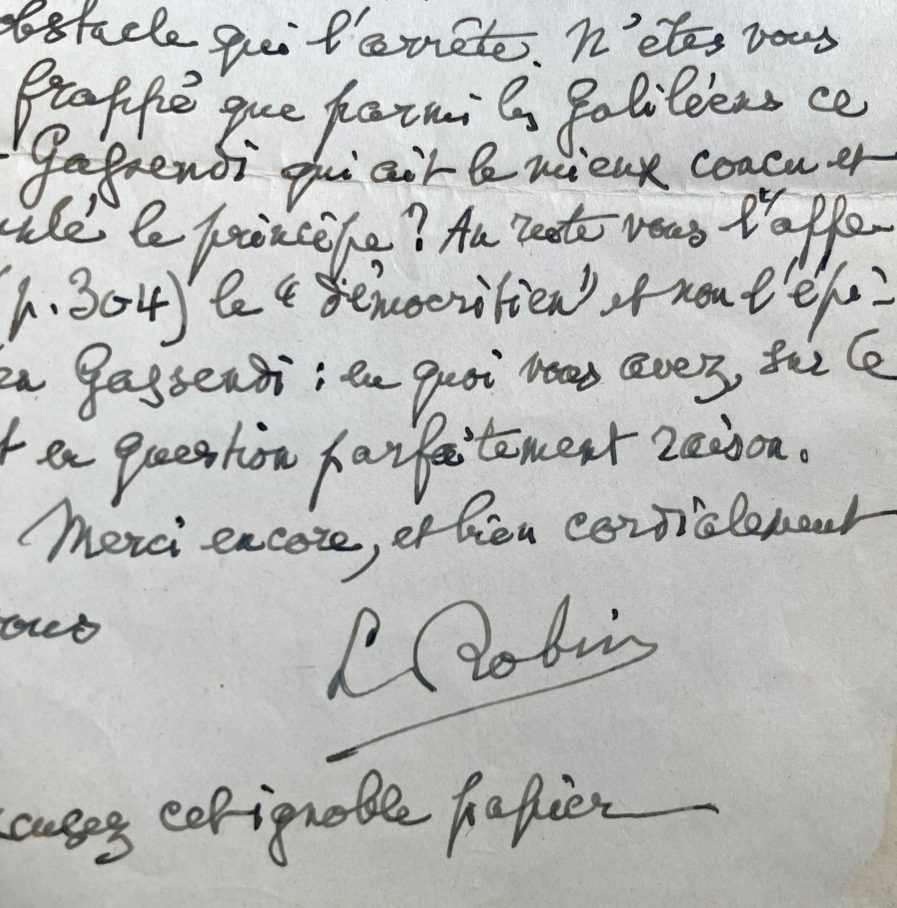 obstacle qui l'arrête. N'êtes vous
frappé que parmi les Galiléens ce
Gassendi qui ait le mieux concu et
le principe? Au reste vous l'appe-
(p. 304) le "démocritien" et non l'épi-
en Gassendi : en quoi vous avez, sur ce
t en question parfaitement raison.
Merci encore, et bien cordialement
vous
L Robin
cusez cet ignoble papier